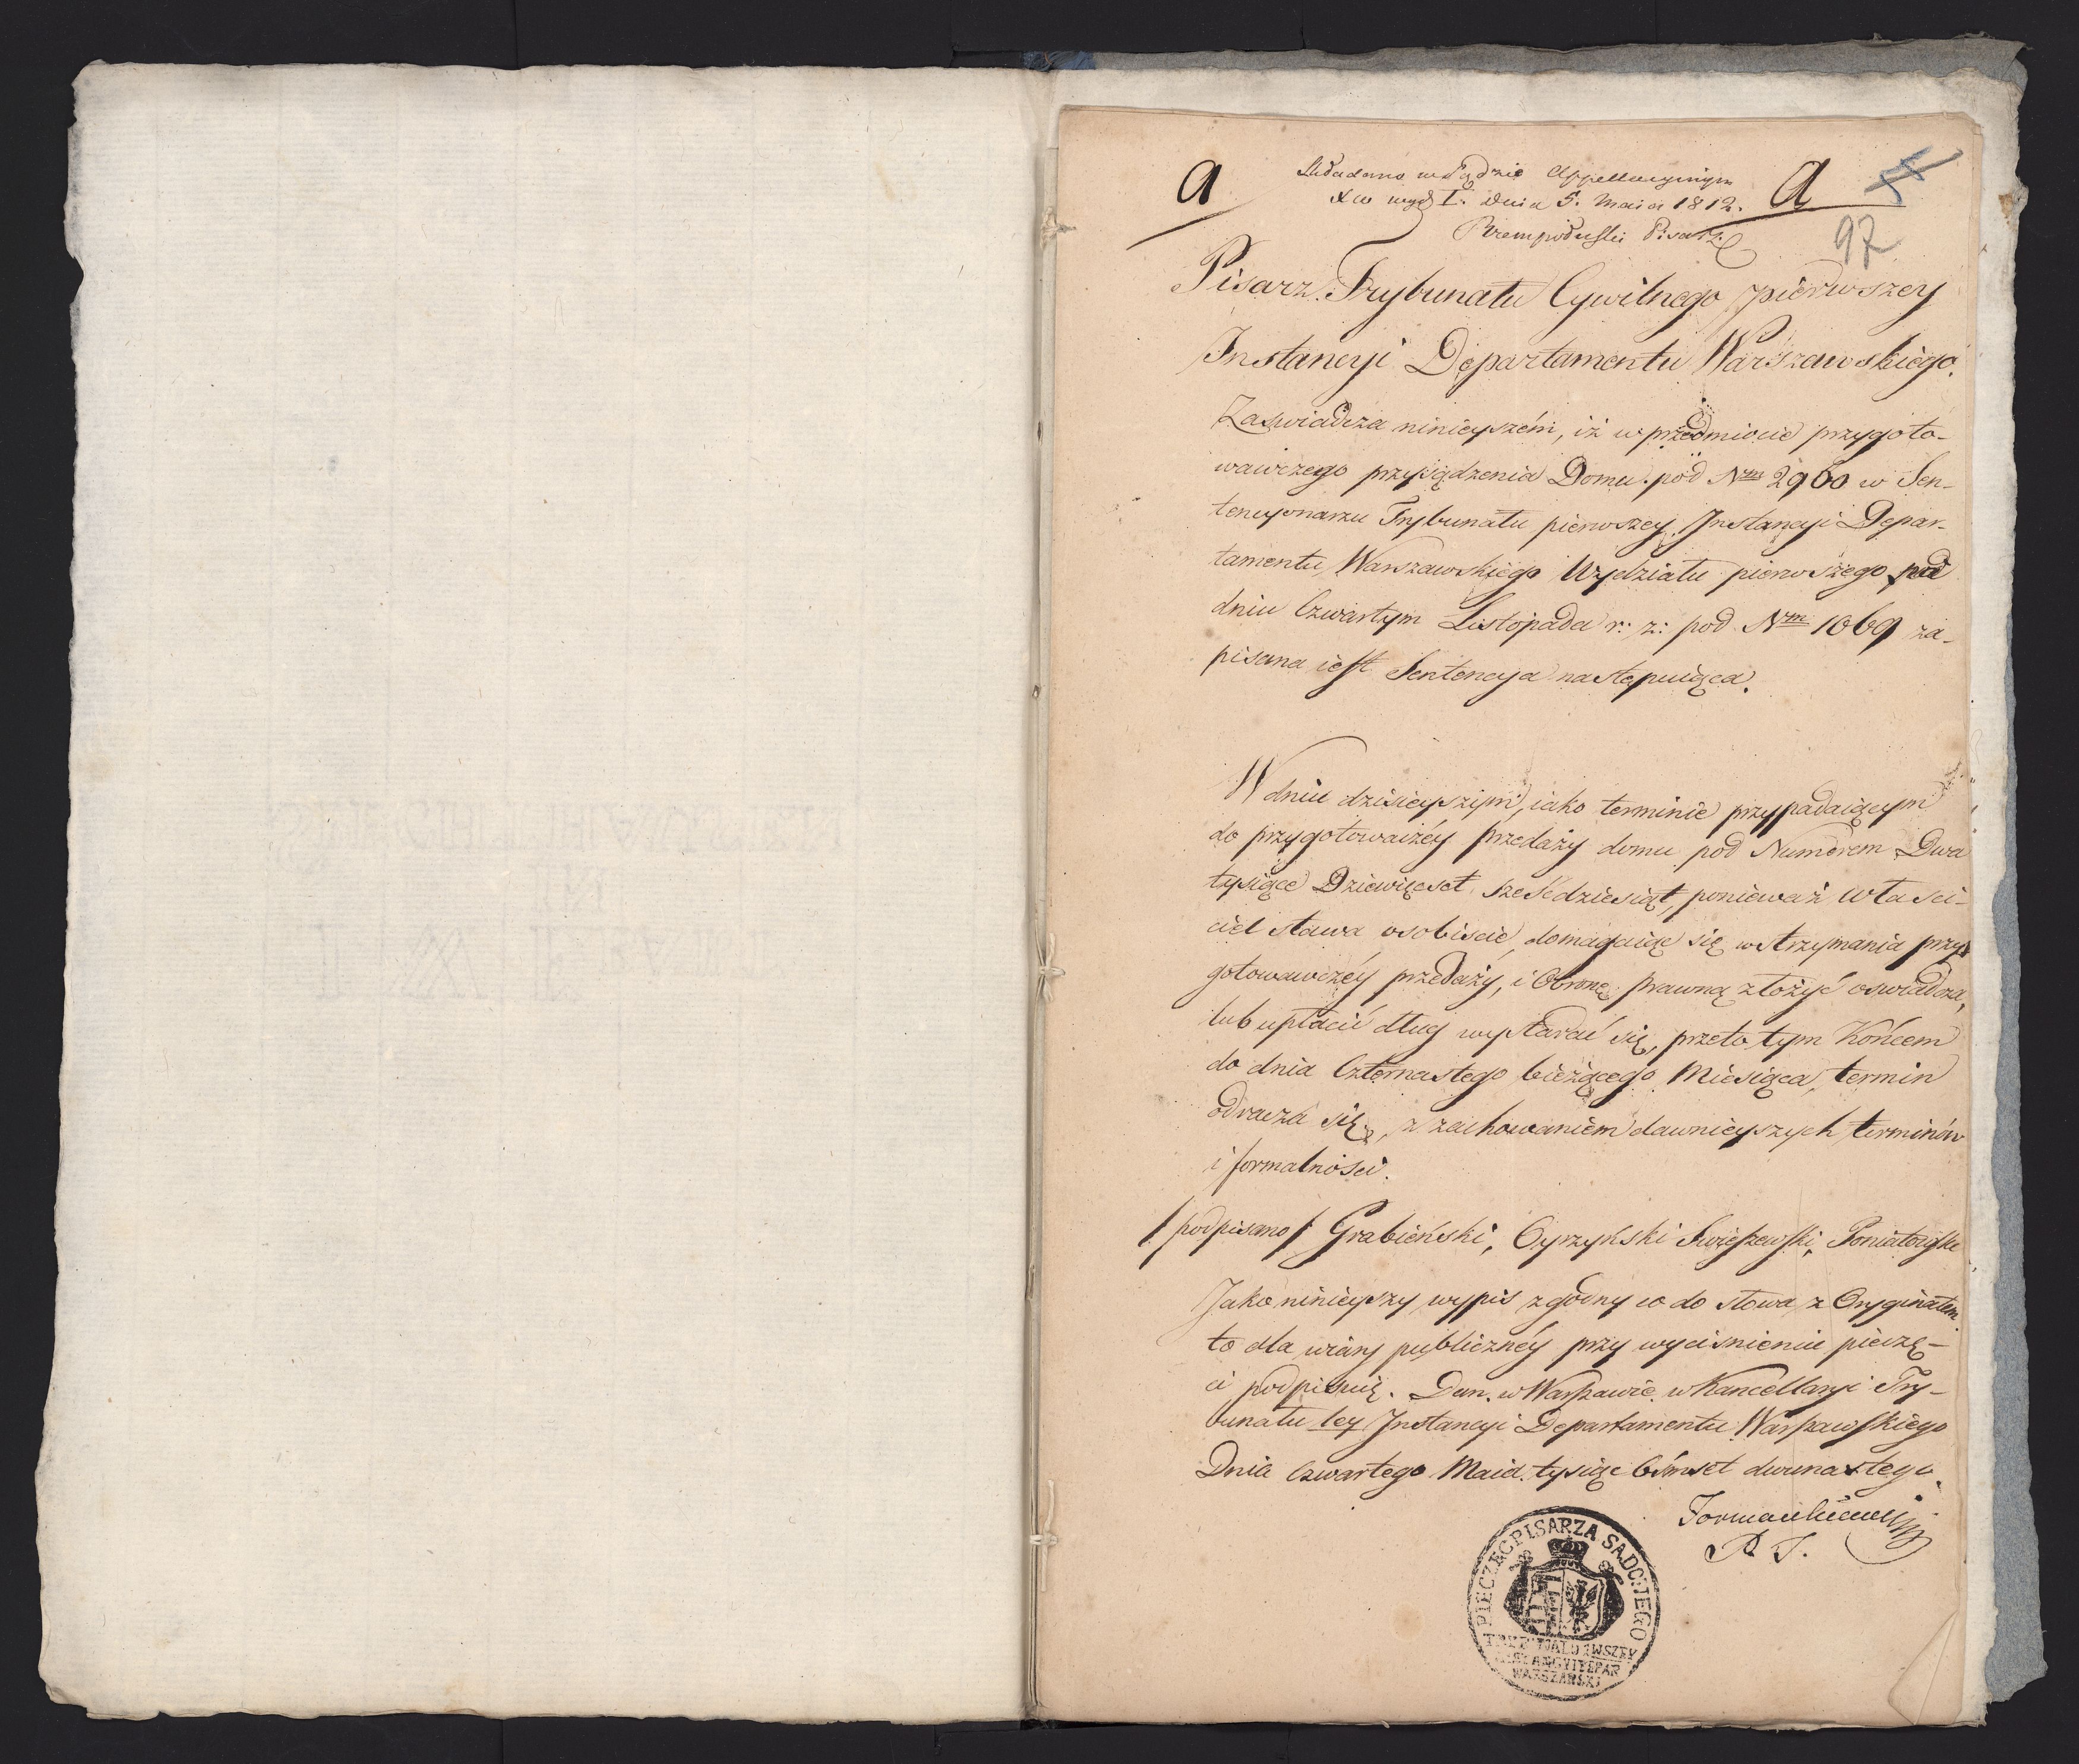 a
Składano w Sądzie Appellacyinym
xw wyd I. dnia 5. Maia 1812.
Pisarz
a
97
Pisarz Trybunału Cywilnego pierwszey
Instancyi Departamentu Warszawskiego.
Zaswiadcza ninieyszém, iż w przedmiocie przygoto-
wawczego przysądzenia Domu pod Nrm 2960 w Sen-
tencyonarzu Trybunału pierwszey Instancyi Depar-
tamentu Warszawskiego Wydziału pierwszego pod
dniu Czwartym Listopada r: z: pod Nrm 1069 za-
pisana iest Sentencya następuiąca.
W dniu dzisieyszym, iako terminie przypadaiącym
do przygotowaiwzéy przedaży domu pod Numerem Dwa
tysiące Dziewięcset sześćdziesiąt, ponieważ Własci-
ciel stawa osobiscie, domagaiąc się wstrzymania przy
gotowawczéy przedaży, i Obronę prawną złożyć oswiadcza,
lub upłacić dług wystarać się, przeto tym Końcem
do dnia Czternastego bieżącego Miesiąca, termin
odracza się, z zachowaniem dawnieyszych terminów
i formalności.
/podpisano/ Grabieński, Ożyrzyński Swięszewski, Poniatowski
Jako ninieyszy wypis zgodny co do słowa z Oryginałem
to dla wiary publicznéy przy wyciśnieniu pieczę-
ci podpisuię. Dan. w Warszawie w Kancellaryi Try-
bunału Iey Instancyi Departamentu Warszawskiego
Dnia Czwartego Maia tysiąc ośmset dwunastego.
P. T.
PIECZĘC PISARZA SĄDO:IEGO
TRYBUNAŁU IWSZEY
INSTANCYI DEPAR
WARSZAWSKI